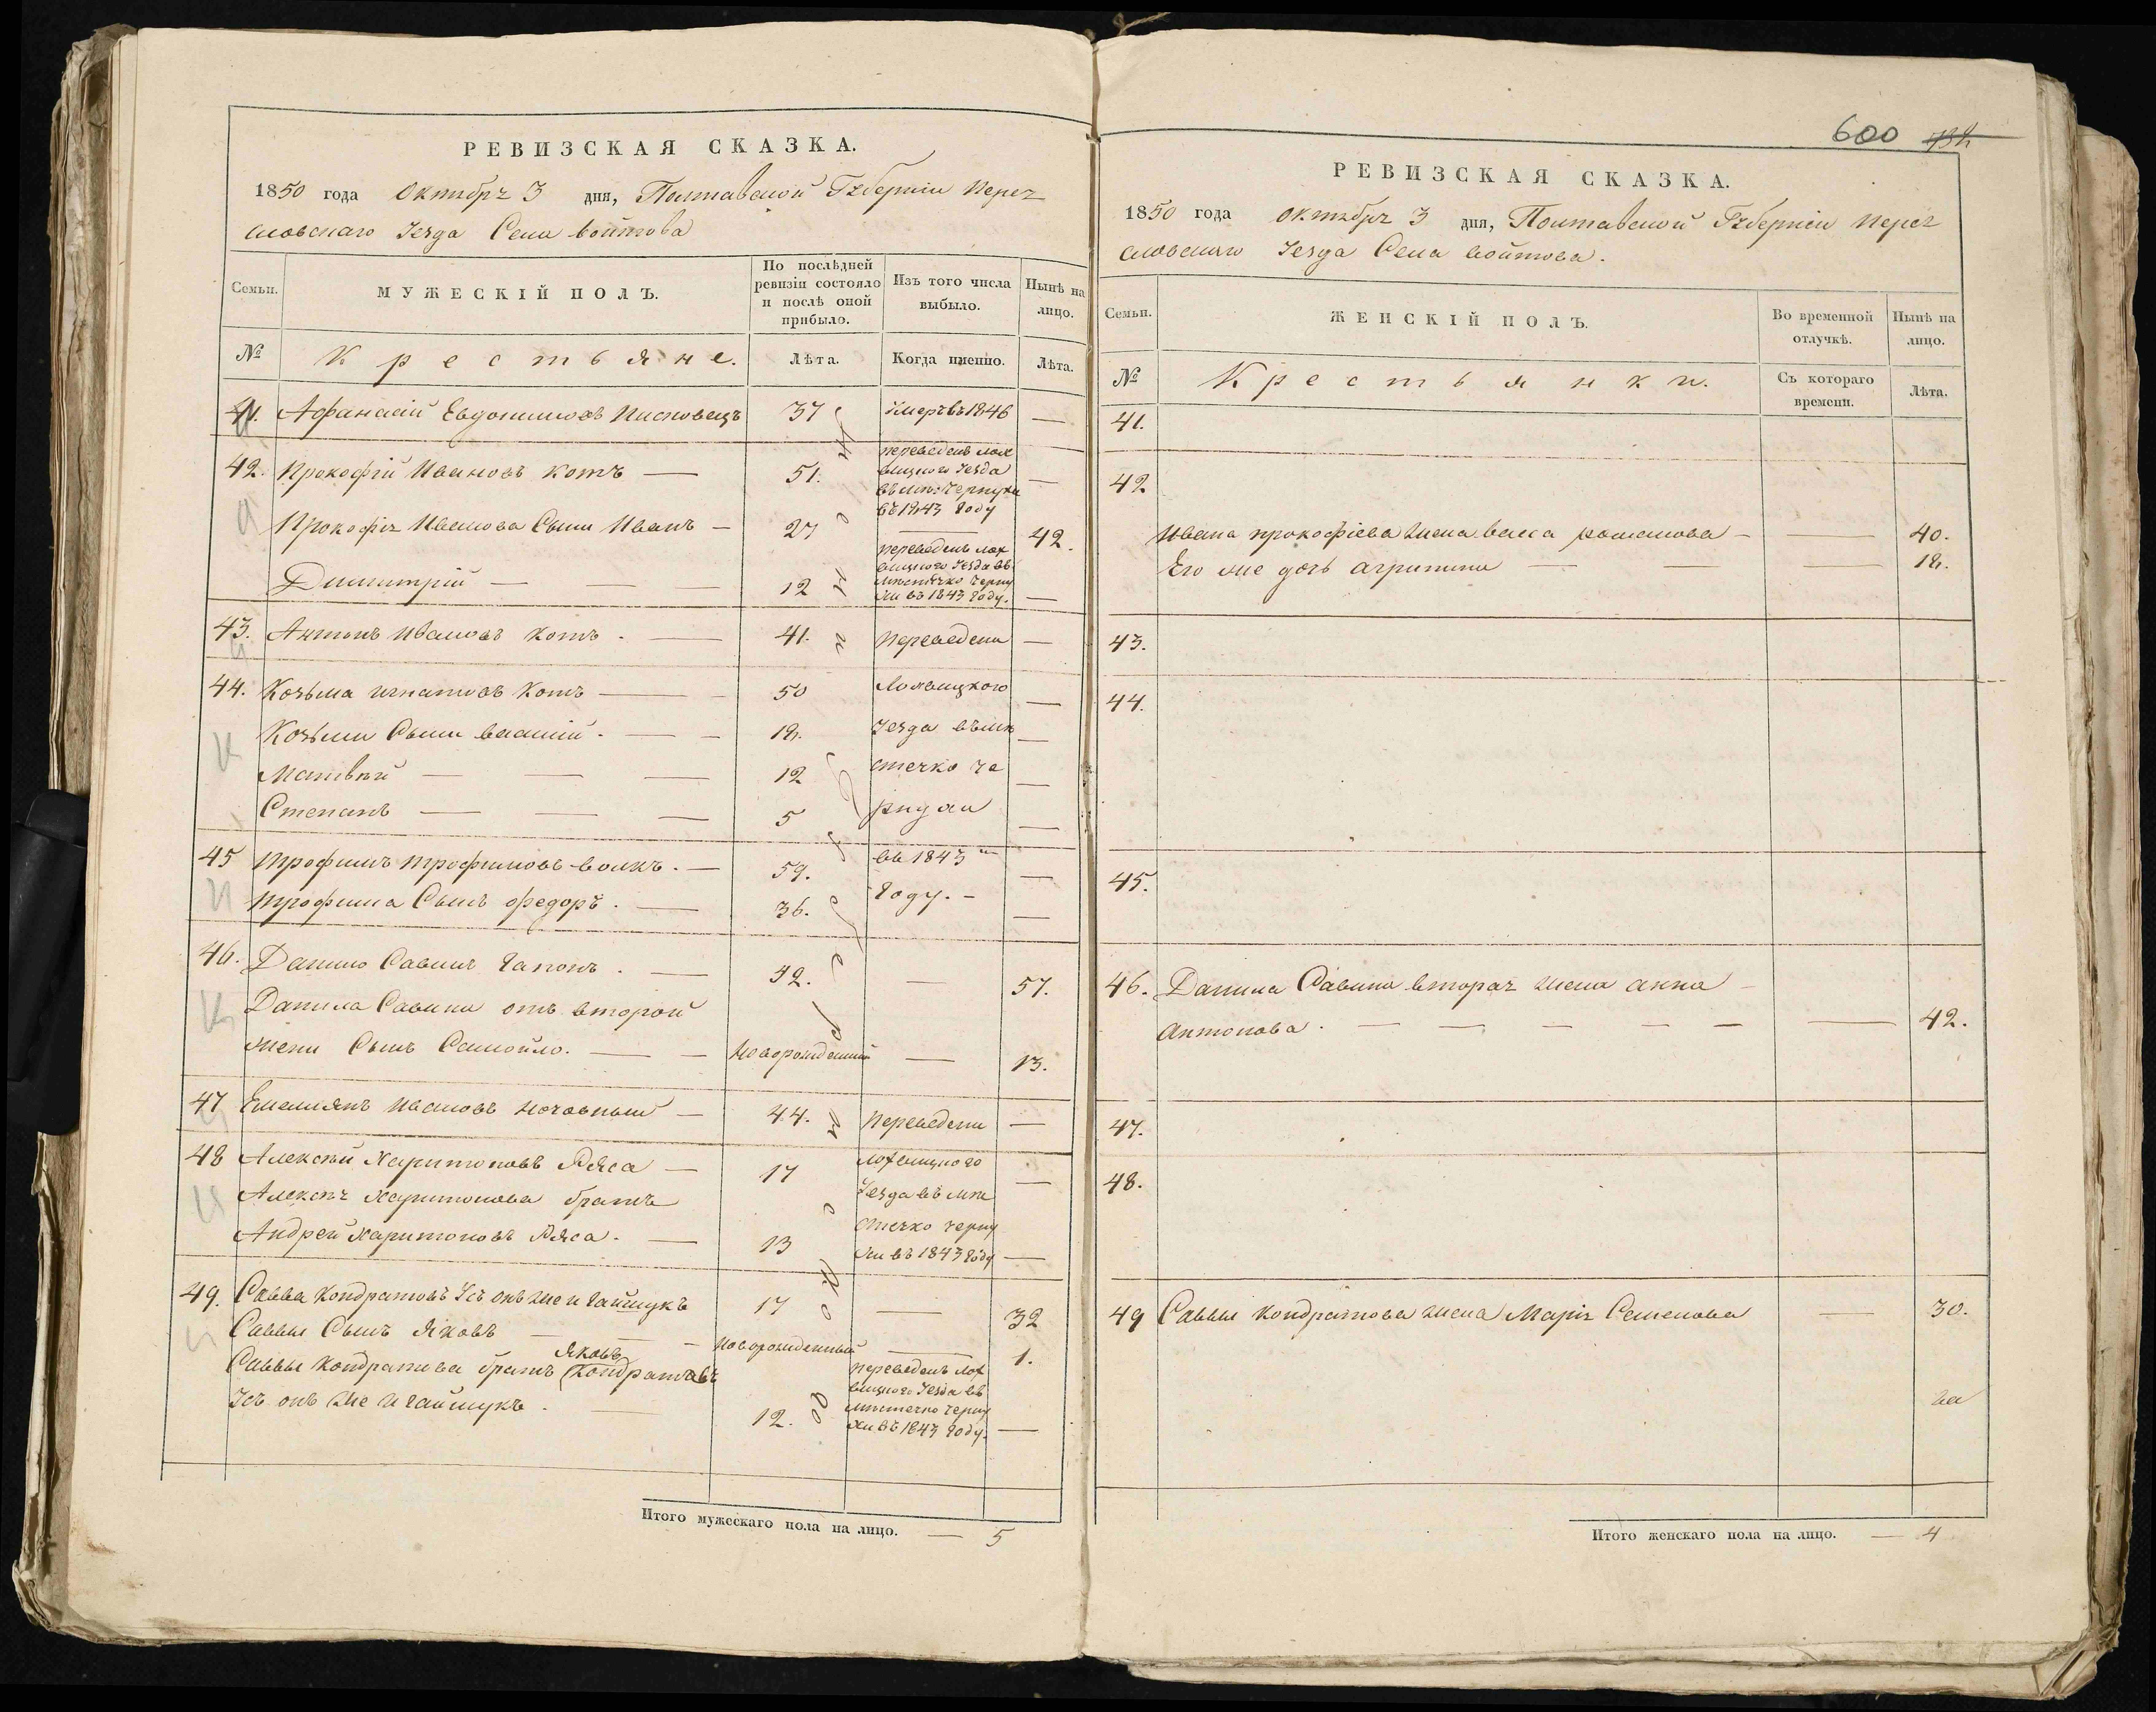 РЕВИЗСКАЯ СКАЗКА.
1850 года Октября 3 дня, Полтавской Губерніи Перея
словскаго Уезда Села Войтова
Семьи.
МУЖЕСКІЙ ПОЛЪ.
По послѣдней
ревизіи состояло
и послѣ оной
прибыло.
Изъ того числа
выбыло.
Нынѣ на
лицо.
№
Крестьяне.
Лѣта.
Когда именно.
Лѣта.
41. Афанасій Евдокимовъ 37 Умеръ въ 1846 —
42. Прокофій Ивановъ Котъ — 51. —
переведенъ лох
вицкого Уезда
въ мѣс: Чернухи
въ 1843 году
Прокофія Иванова Сынъ Иванъ — 27 — 42.
Димитрій — — — 12 —
переведенъ лох
вицкого Уезда въ
мѣстечко Черну
хи въ 1843 году.
43. Антонъ Ивановъ Котъ. — 41. переведены —
44. Козьма Игнатовъ Котъ — — 50 Лохвицкого —
Козьмы Сыны Василій. — — 18. Уезда въ мѣ —
Матвѣй — — — 12 стечко Че —
Степанъ — — — 5 рнухи —
45 Трофимъ Трофимовъ Волкъ. — 59. въ 1843 м —
Трофима Сынъ Федоръ. — 36. году. — —
46. Данило Савинъ Гапонъ. — 42. — 57.
Данила Савина отъ второй
жены Сынъ Самойло. — — Новорожденный — 13.
47 Емелиянъ Ивановъ — 44. переведены —
48 Алексѣй Харитоновъ Ряса — 17 лохвицкого —
Алексѣя Харитонова братъ Уезда въ мѣ
Андрей Харитоновъ Ряса. — 13 стечко Черну
хи въ 1843 году —
49. Савва Кондратовъ Усъ онъ же и Гайшукъ 17 — 32
Саввы Сынъ Яковъ — — — Новорожденный — 1.
Яковъ
Саввы Кондратова братъ (Кондратовъ
Усъ онъ же и Гайшукъ. — 12. —
переведенъ лох
вицкого Уезда въ
мѣстечко Черну
хи въ 1843 году.
Итого мужескаго пола на лицо. — 5
600 732
РЕВИЗСКАЯ СКАЗКА.
1850 года Октября 3 дня, Полтавской Губерніи Перея
словскаго Уезда Села Войтова.
Семьи.
ЖЕНСКІЙ ПОЛЪ.
Во временной
отлучкѣ.
Нынѣ на
лицо.
№
Крестьянки.
Съ котораго
времени.
Лѣта.
41.
42
Ивана Прокофіева жена Васса Романова — — 40.
Его же дочь Агрипина — — — 18.
43.
44.
45.
46. Данила Савина вторая жена Анна —
Антонова. — — — — — — 42.
47.
48.
49 Саввы Кондратова жена Марія Семенова — 30.
Итого женскаго пола на лицо. — 4